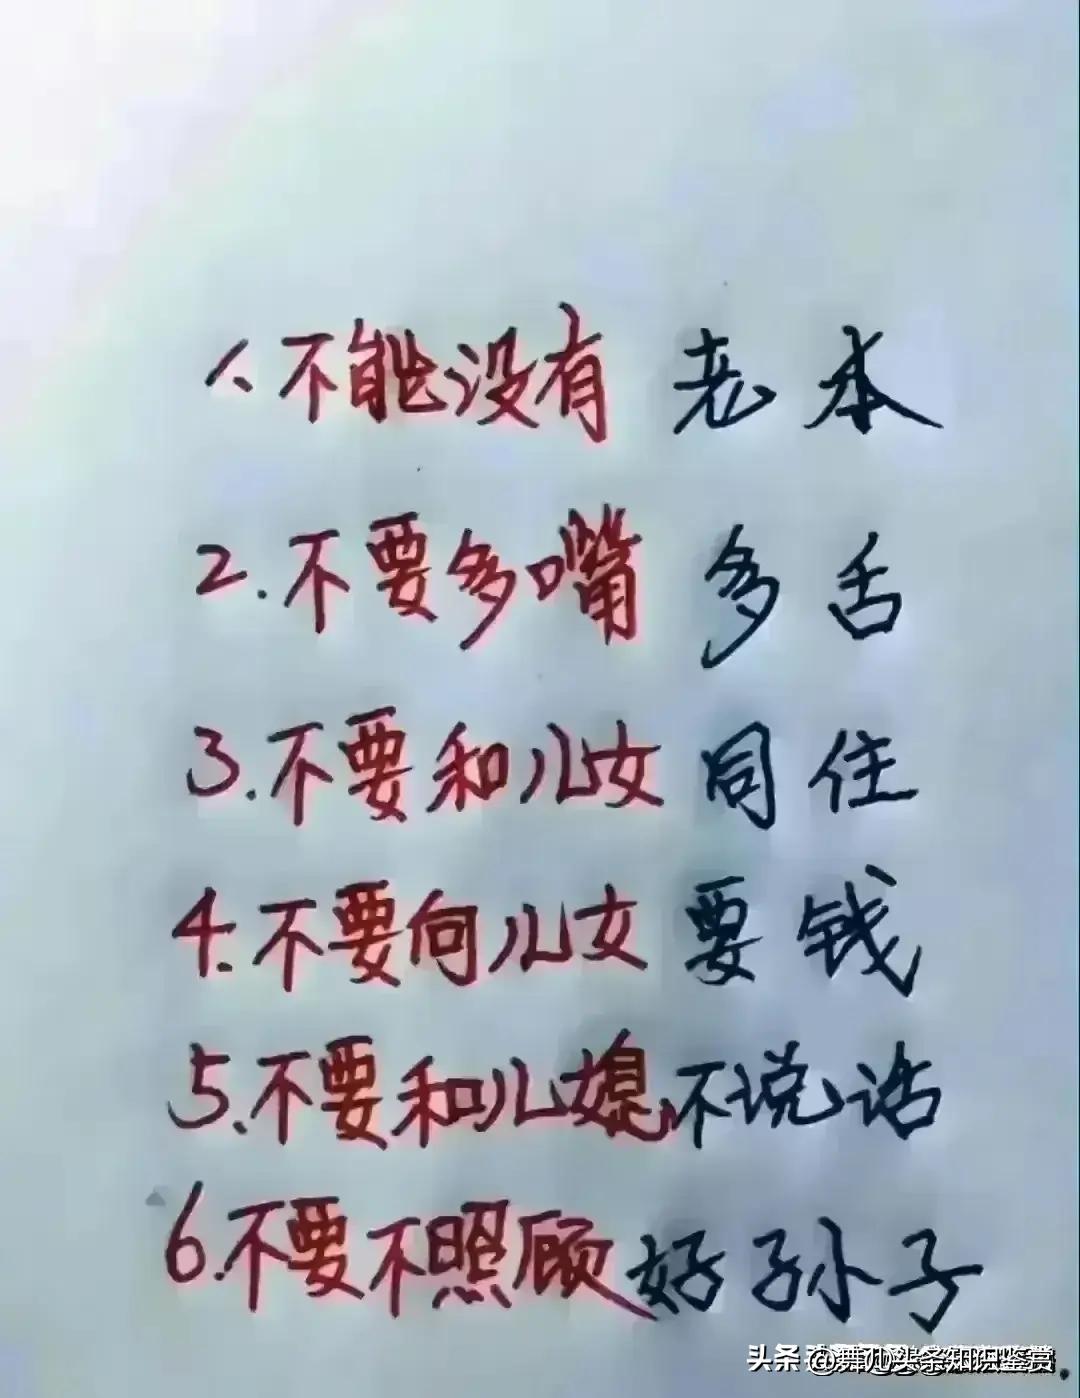 1.不能没有老本
2.不要多嘴多舌
3.不要和儿女同住
4.不要向儿女要钱
5.不要和儿媳不说话
6.不要不照顾好孙子
头条